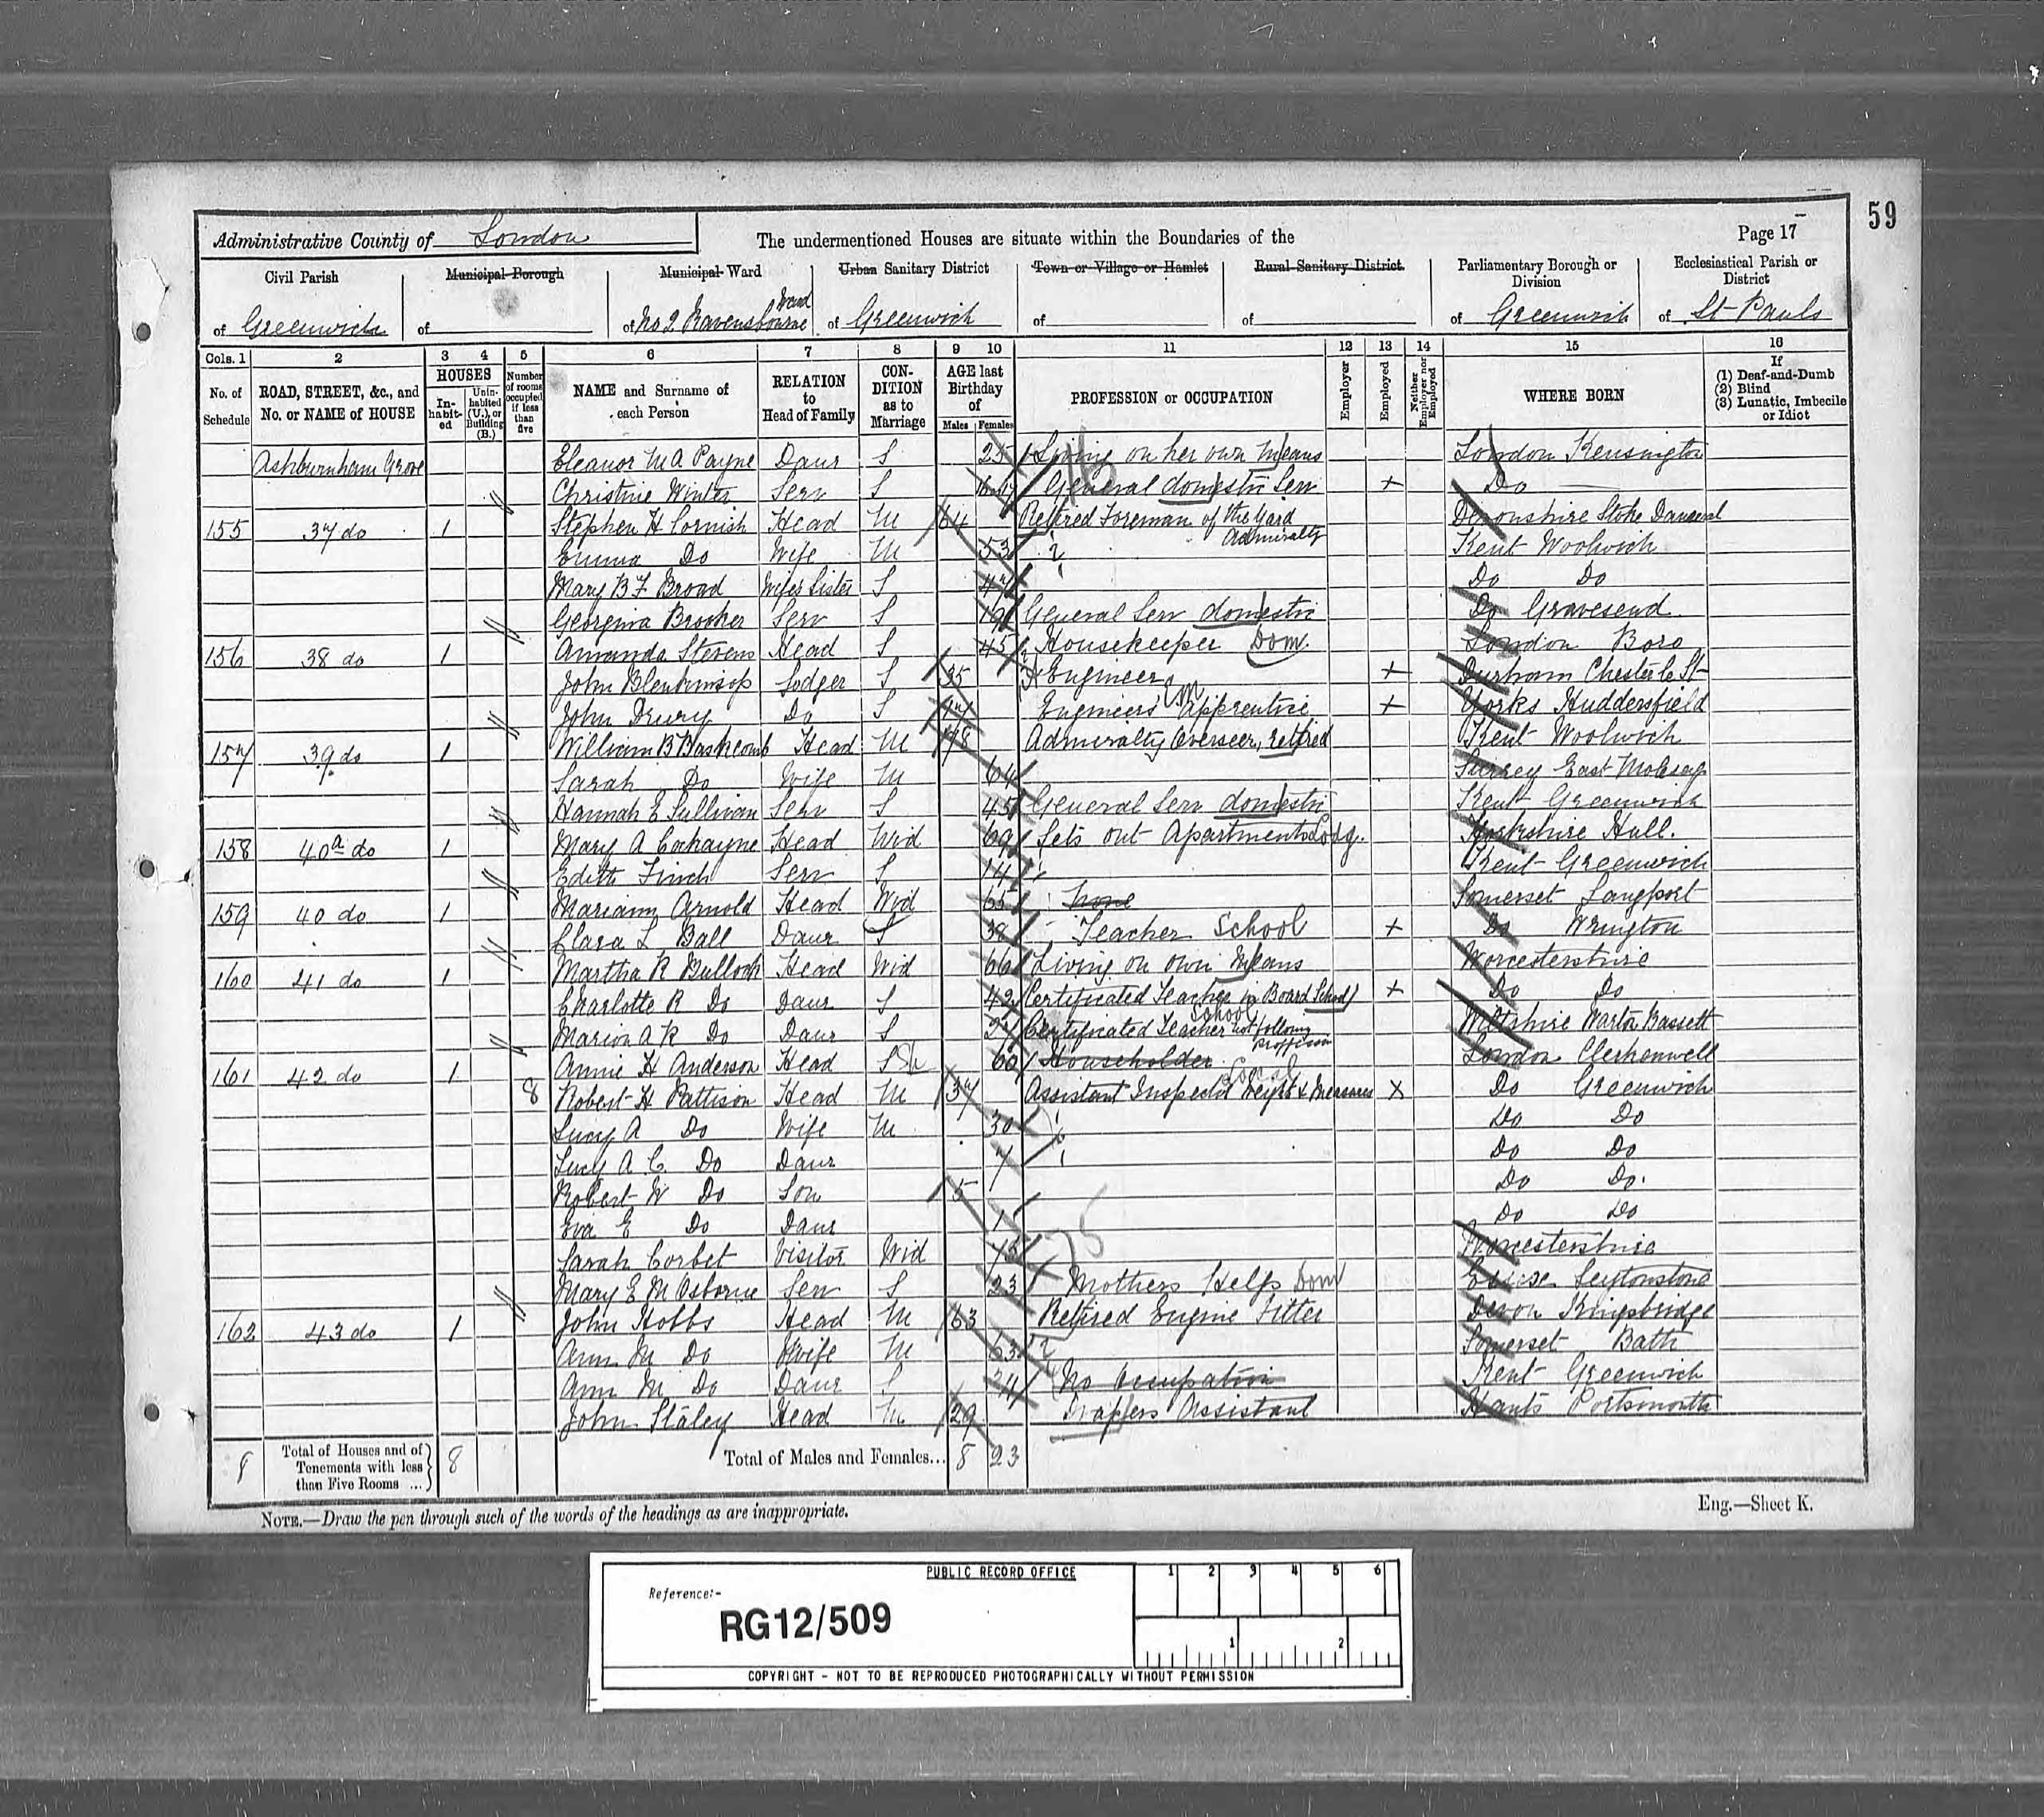 59
Administrative County of London
The undermentioned Houses are situate within the Boundaries of the
Page 17
Civil Parish
of Greenwich
Municipal Borough
of
Municipal Ward
of No 2 Ravensbourne Ward
Urban Sanitary District
of Greenwich
Town or Village or Hamlet
of
Rural Sanitary District
of
Parliamentary Borough or Division
of Greenwich
Ecclesiastical Parish or District
of St Pauls
Cols. 1 2 3 4 5 6 7 8 9 10 11 12 13 14 15 16
No. of Schedule
ROAD, STREET, &c., and No. or NAME of HOUSE
HOUSES
In-habit-ed
Unin-habited (U.), or Building (B.)
Number of rooms occupied if less than five
NAME and Surname of each Person
RELATION to Head of Family
CON-DITION as to Marriage
AGE last Birthday of
Males Females
PROFESSION or OCCUPATION
Employer
Employed
Neither Employer nor Employed
WHERE BORN
If
(1) Deaf-and-Dumb
(2) Blind
(3) Lunatic, Imbecile or Idiot
Ashburnham Grove Eleanor M A Payne Daur S 25 Living on her own Means London Kensington
Christine Winter Serv S General domestic Serv + Do
155 37 do 1 Stephen H Cornish Head M 64 Retired Foreman of the Yard Admiralty Devonshire Stoke Damerel
Emma Do Wife M 53 Kent Woolwich
Mary B F Broad Wifes Sister S 47 Do Do
Georgina Brooker Serv S 19 General Serv domestic Do Gravesend
156 38 do 1 Amanda Stevens Head S 45 Housekeeper Dom. London Boro
John Blenkinsop Lodger S 35 Engineer + Durham Chester le St
John Drury Do S 17 Engineers Apprentice + Yorks Huddersfield
157 39 do 1 William B Bashcomb Head M 78 Admiralty Overseer, retired Kent Woolwich
Sarah Do Wife M 64 Surrey East Molesey
Hannah E Sullivan Serv S 45 General Serv domestic Kent Greenwich
158 40a do 1 Mary A Cockayne Head Wid 69 Lets out Apartments Lodg. Yorkshire Hull.
Edith Finch Serv S 14 Kent Greenwich
159 40 do 1 Mariann Arnold Head Wid 65 None Somerset Langport
Clara L Ball Daur S 39 Teacher School + Do Wrington
160 41 do 1 Martha R Bulloch Head Wid 66 Living on own Means Worcestershire
Charlotte R Do Daur S 42 Certificated Teacher in Board School + Do Do
Marion A R Do Daur S 27 Certificated Teacher School not following proffesion Wiltshire Bassett
161 42 do 1 Annie H Anderson Head S 60 Householder London Clerkenwell
8 Robert H Pattison Head M 37 Assistant Inspector Weights & Measures Local X Do Greenwich
Lucy A Do Wife M 30 Do Do
Lucy A C Do Daur 7 Do Do
Robert W Do Son 5 Do Do.
Eva E Do Daur 1 Do Do
Sarah Corbet Visitor Wid Worcestershire
Mary E M Osborne Serv S 23 Mothers Help Dom Essex Leytonstone
162 43 do 1 John Hobbs Head M 63 Retired Engine Fitter Devon Kingsbridge
Ann M Do Wife M 63 Somerset Bath
Ann M Do Daur S 24 No Occupation Kent Greenwich
John Staley Head M 29 Drapers Assistant Hants Portsmouth
8 Total of Houses and of Tenements with less than Five Rooms ... 8
Total of Males and Females... 8 23
NOTE.—Draw the pen through such of the words of the headings as are inappropriate.
Eng.—Sheet K.
PUBLIC RECORD OFFICE
Reference:-
RG12/509
1 2 3 4 5 6
1 2
COPYRIGHT - NOT TO BE REPRODUCED PHOTOGRAPHICALLY WITHOUT PERMISSION